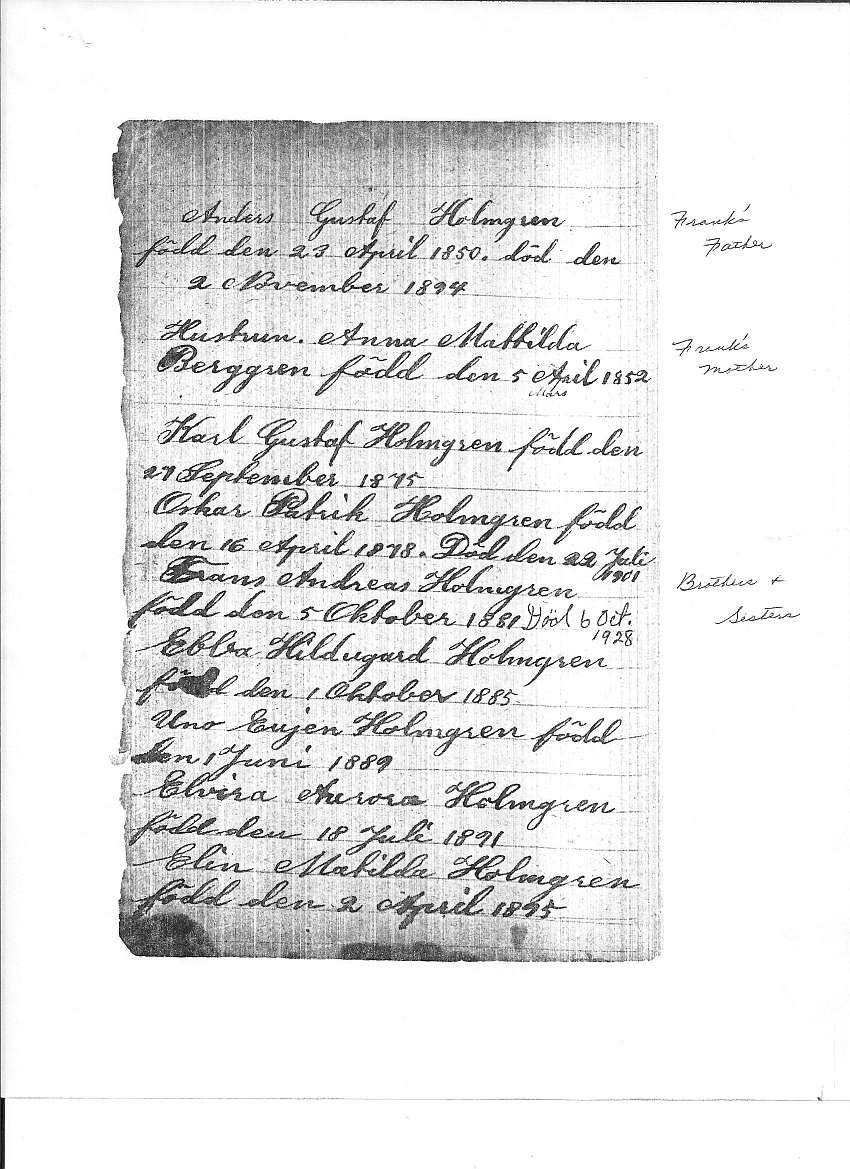 Anders Gustaf Holmgren
född den 23 April 1850. död den
2 November 1894
Frank's
Father
Hustrun. Anna Mathilda
Berggren född den 5 April 1852
Mars
Frank's
Mother
Karl Gustaf Holmgren född den
27 September 1875
Oskar Patrik Holmgren född
den 16 April 1878. Död den 22 Juli
1901
Frans Andreas Holmgren
född den 5 Oktober 1881 Död 6 Oct.
1928
Brothers +
Sisters
Ebba Hildugard Holmgren
född den 1 Oktober 1885
Uno Eujen Holmgren född
den 1 Juni 1889
Elvira Aurora Holmgren
född den 18 Juli 1891
Elin Matilda Holmgren
född den 2 April 1895